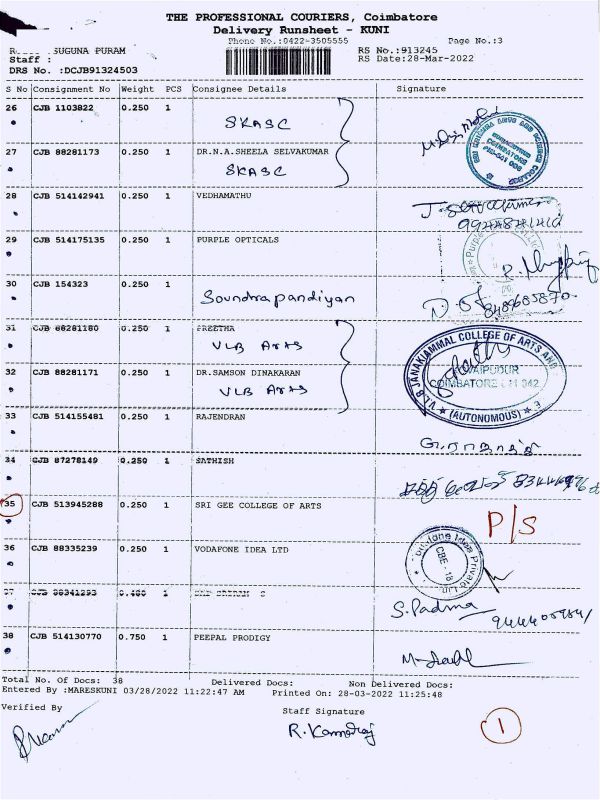 THE PROFESSIONAL COURIERS, Coimbatore
Delivery Runsheet - KUNI
Phone No.:0422-3505555 Page No.:3
SUGUNA PURAM RS No.:913245
Staff : RS Date:28-Mar-2022
DRS No. :DCJB91324503
S No Consignment No Weight PCS Consignee Details Signature
26 CJB 1103822 0.250 1 SKASC
27 CJB 88281173 0.250 1 DR.N.A.SHEELA SELVAKUMAR
SKASC
28 CJB 514142941 0.250 1 VEDHAMATHU
29 CJB 514175135 0.250 1 PURPLE OPTICALS
30 CJB 154323 0.250 1 Soundrapandiyan
31 CJB 88281180 0.250 1 PREETHA
VLB Arts
32 CJB 88281171 0.250 1 DR.SAMSON DINAKARAN
VLB Arts
VLB JANAKIAMMAL COLLEGE OF ARTS AND
COIMBATORE 641 042
(AUTONOMOUS)
33 CJB 514155481 0.250 1 RAJENDRAN
34 CJB 87278149 0.250 1 SATHISH
35 CJB 513945288 0.250 1 SRI GEE COLLEGE OF ARTS P/S
36 CJB 88335239 0.250 1 VODAFONE IDEA LTD
Vodafone Idea Private Ltd
CBE - 18
37 CJB 88341293 0.480 1
S. Padma
38 CJB 514130770 0.750 1 PEEPAL PRODIGY
Total No. Of Docs: 38 Delivered Docs: Non Delivered Docs:
Entered By :MARESKUNI 03/28/2022 11:22:47 AM Printed On: 28-03-2022 11:25:48
Verified By Staff Signature
R. Kamaraj
1